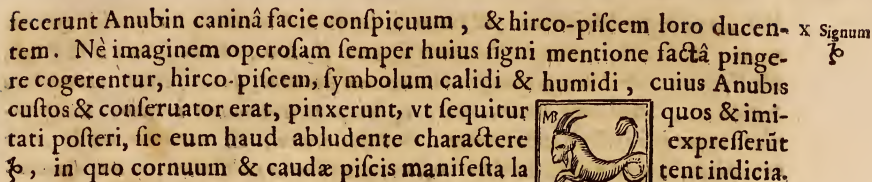 fecerunt Anubin caninâ facie conſpicuum, & hirco-piſcem loro ducen- x Signum
tem. Nè imaginem operoſam ſemper huius ſigni mentione factâ pinge- ♑
re cogerentur, hirco-piſcem, ſymbolum calidi & humidi, cuius Anubis
cuſtos & conſeruator erat, pinxerunt, vt ſequitur quos & imi-
tati poſteri, ſic eum haud abludente charactere expreſſerūt
♑, in quo cornuum & caudæ piſcis manifeſta la tent indicia.